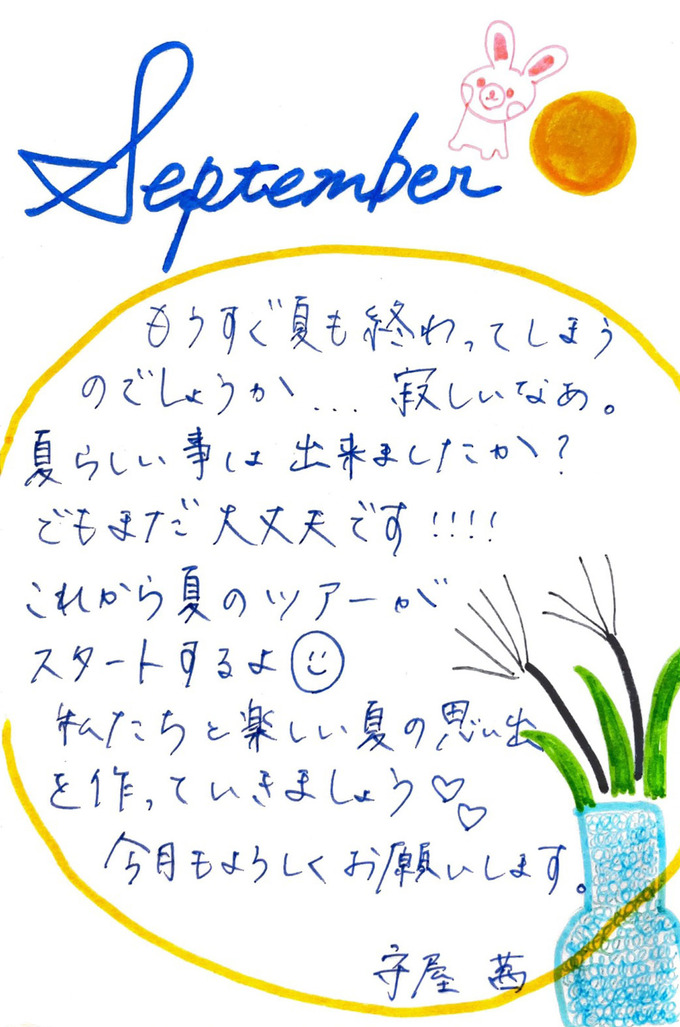 September
もうすぐ夏も終わってしまう
のでしょうか... 寂しいなあ。
夏らしい事は出来ましたか?
でもまだ大丈夫です!!!!
これから夏のツアーが
スタートするよ
私たちと楽しい夏の思い出
を作っていきましょう♡♡
今月もよろしくお願いします。
守屋 茜